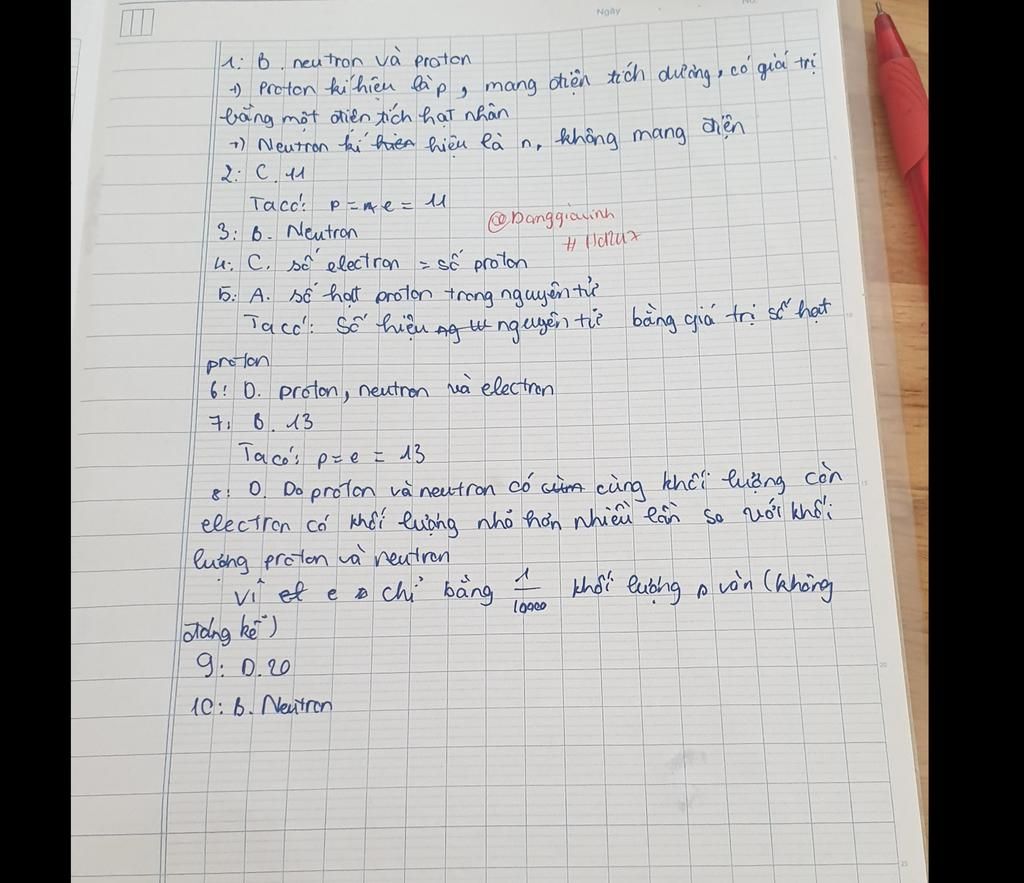 Ngày
No.
1: B. neutron và proton
+) Proton kí hiệu là p, mang điện tích dương, có giá trị
bằng một điện tích hạt nhân
+) Neutron kí hiệu là n, không mang điện
2: C. 11
Ta có: p = e = 11
@Danggiavinh
3: B. Neutron
4: C. số electron = số proton
5: A. số hạt proton trong nguyên tử
Ta có: Số hiệu nguyên tử bằng giá trị số hạt
proton
6: D. proton, neutron và electron
7: B. 13
Ta có: p = e = 13
8: D. Do proton và neutron có cùng khối lượng còn
electron có khối lượng nhỏ hơn nhiều lần so với khối
lượng proton và neutron
Vì e chỉ bằng 1/10000 khối lượng p và n (không
đáng kể)
9: D. 20
10: B. Neutron